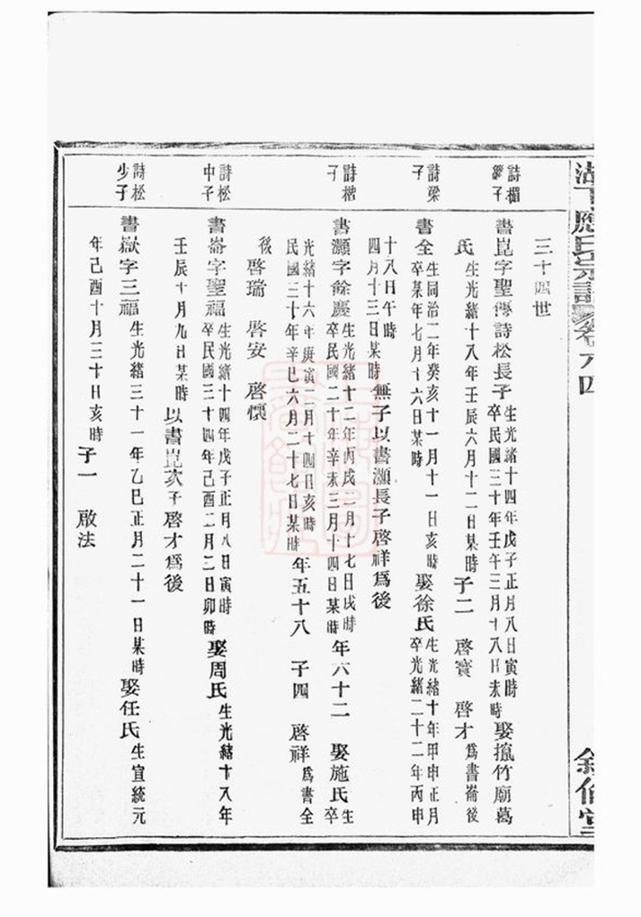 湖下應氏宗譜 卷六四
敘倫堂
三十四世
詩楣
繼子
書崑字聖傳詩松長子 生光緒十四年戊子正月八日寅時 卒民國三十年壬午三月十八日未時 娶搵竹廟葛
氏 生光緒十八年壬辰六月十二日某時 子二 啓寶 啓才 為書崙後
詩梁
子
書全 生同治二年癸亥十一月十一日亥時 卒某年七月十六日某時 娶徐氏 生光緒十年甲申正月 卒光緒二十二年丙申
十八日午時 四月十三日某時 無子以書灝長子啓祥爲後
詩楷
子
書灝字餘慶 生光緒十二年丙戌二月十七日戌時 卒民國二十年辛未三月十四日某時 年六十二 娶施氏 生 卒
光緒十六年庚寅二月十四日亥時 民國三十年辛巳六月二十七日某時 年五十八 子四 啓祥 爲書全
後 啓瑞 啓安 啓懷
詩松
中子
書崙字聖福 生光緒十四年戊子正月八日寅時 卒民國三十四年己酉二月二日卯時 娶周氏 生光緒十八年
壬辰十月九日某時 以書崑次子啓才爲後
詩松
少子
書嶽字三福 生光緒三十一年乙巳正月二十一日某時 娶任氏 生宣統元
年己酉十月三十日亥時 子一 啟法